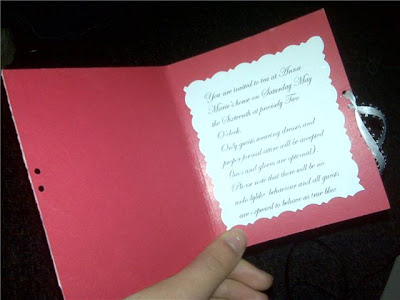 You are invited to tea at Anna
Marie's house on Saturday May
the Sixteenth at precisely Two
O'clock.
Only guests wearing dresses and
proper formal attire will be accepted
(hats and gloves are optional).
Please note that there will be no
unladylike behaviour and all guests
are expected to behave as true blue